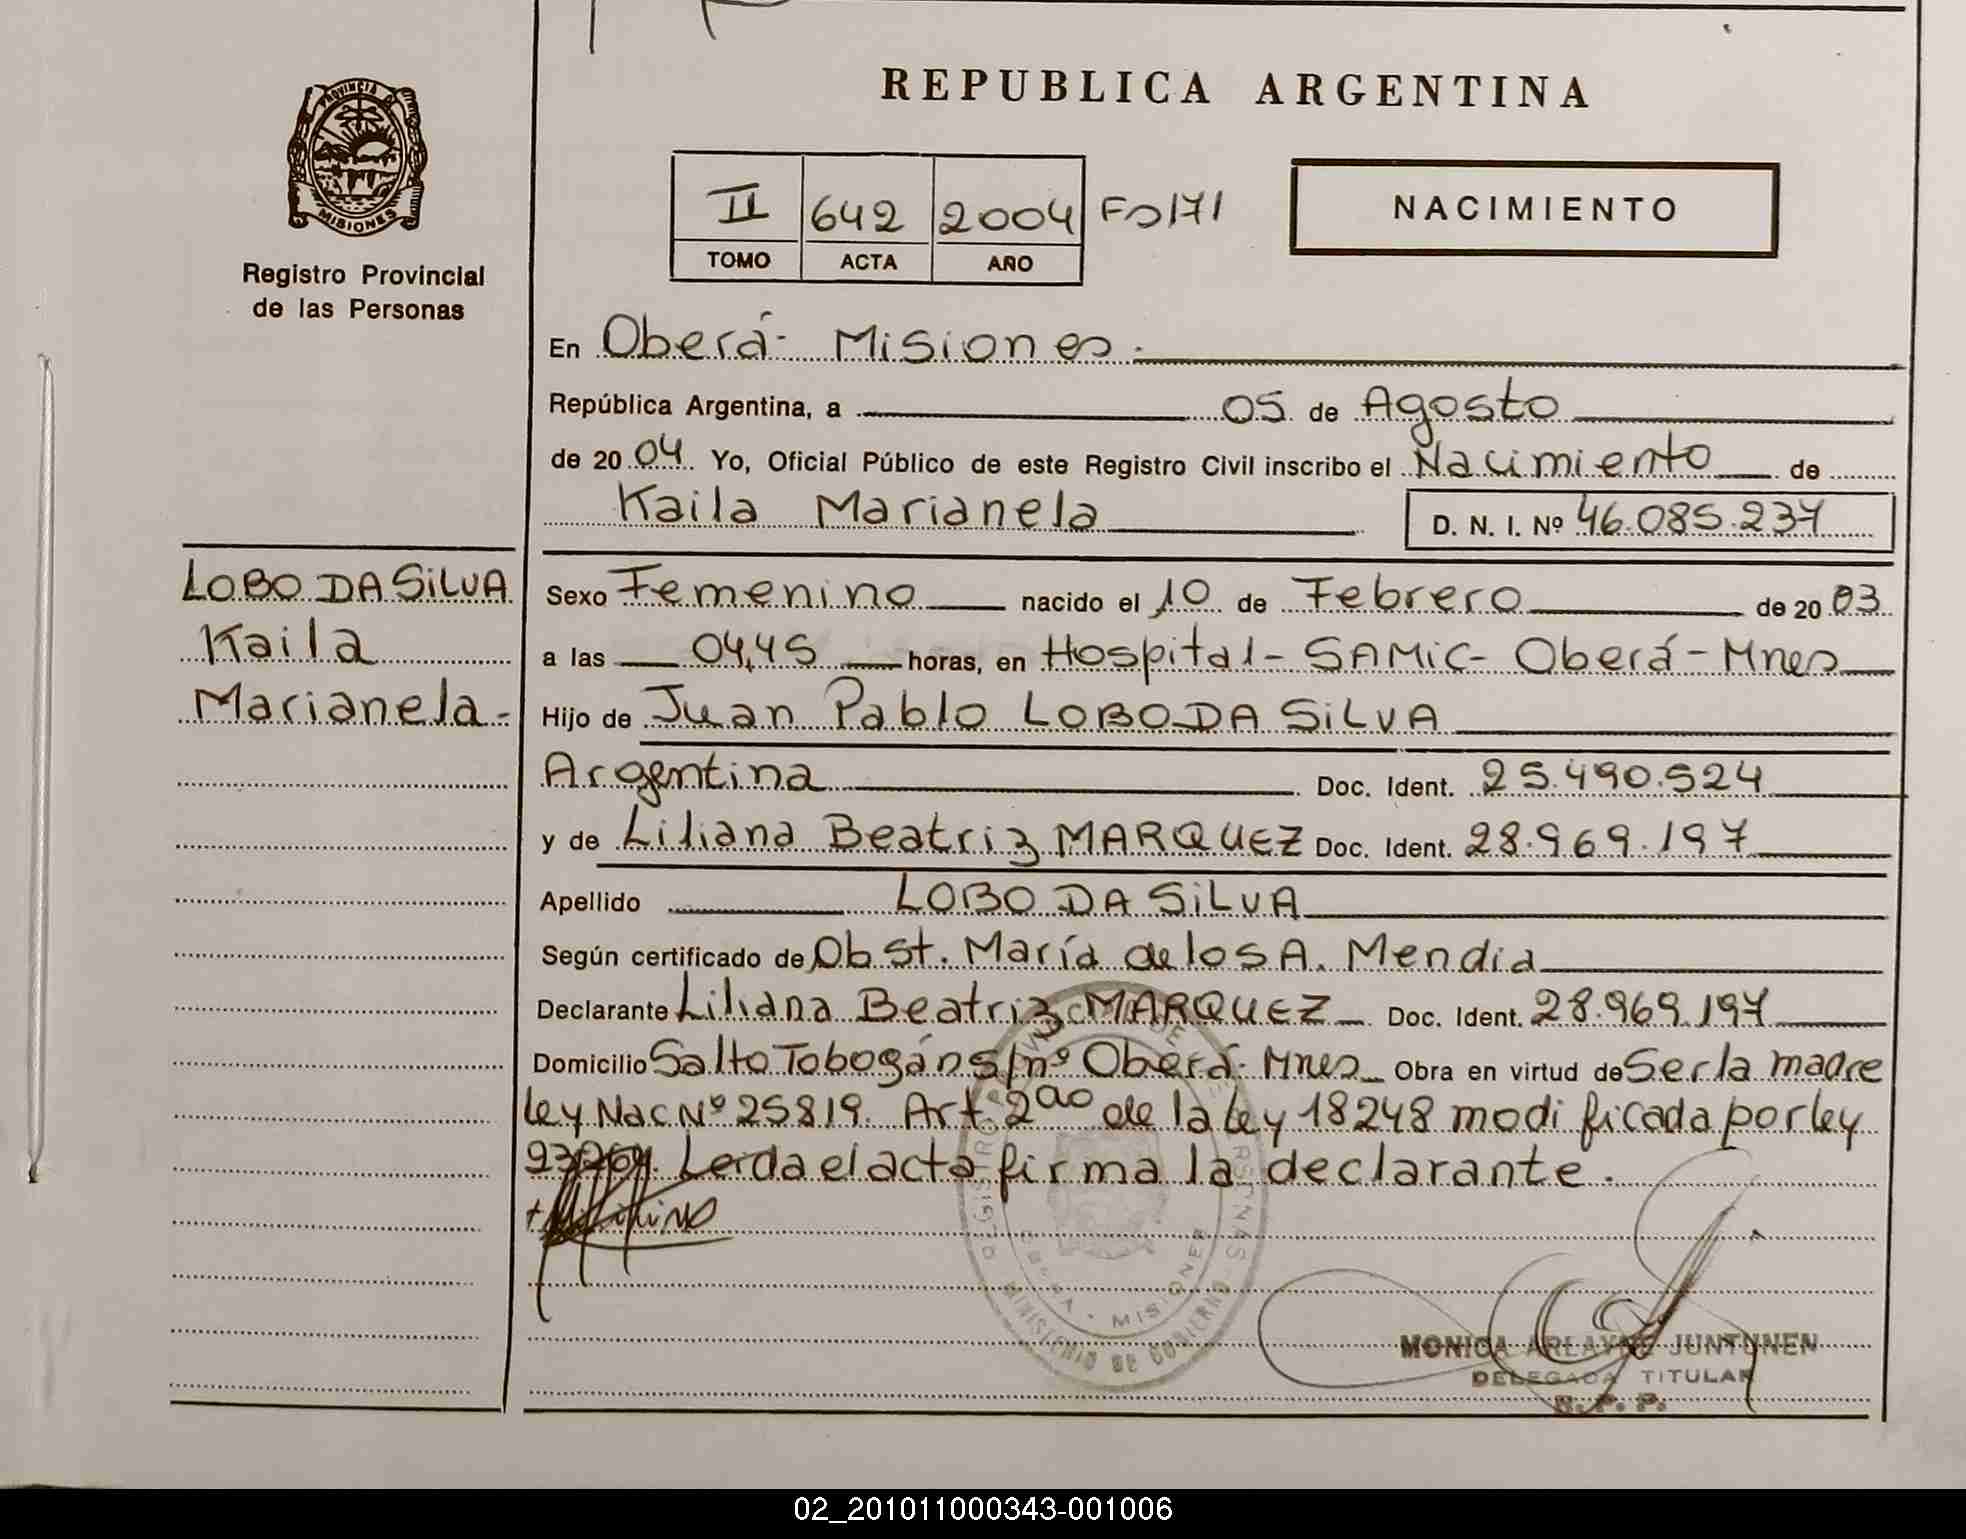 REPUBLICA ARGENTINA
PROVINCIA DE
MISIONES
Registro Provincial
de las Personas
II 642 2004 Fo171
TOMO ACTA AÑO
NACIMIENTO
En Oberá- Misiones.
República Argentina, a 05 de Agosto
de 2004 Yo, Oficial Público de este Registro Civil inscribo el Nacimiento de
Kaila Marianela D. N. I. Nº 46.085.237
LOBO DA SiLVA
Kaila
Marianela-
Sexo Femenino nacido el 10 de Febrero de 2003
a las 04,45 horas, en Hospital- SAMiC- Oberá- Mnes
Hijo de Juan Pablo LOBO DA SiLVA
Argentina Doc. Ident. 25.490.524
y de Liliana Beatriz MARQUEZ Doc. Ident. 28.969.197
Apellido LOBO DA SiLVA
Según certificado de Obst. María de los A. Mendia
Declarante Liliana Beatriz MARQUEZ Doc. Ident. 28.969.197
Domicilio Salto Tobogán s/nº Oberá- Mnes Obra en virtud de Ser la madre
Ley Nac Nº 25819. Art. 2do de la Ley 18248 modificada por ley
Leida el acta firma la declarante.
MINISTERIO DE GOBIERNO
MISIONES
MONICA ARLAYNE JUNTUNEN
DELEGADA TITULAR
R. P. P.
02_201011000343-001006